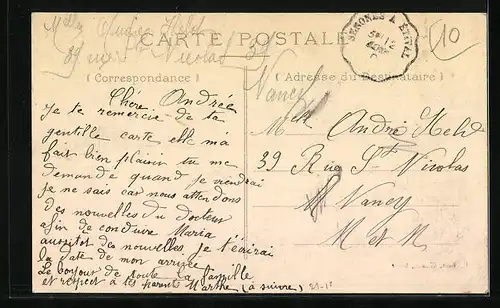 Mlle Andrée Held
39 rue St Nicolas 39
Nancy
CARTE POSTALE
SENONES A ETIVAL
10
(Correspondance)
(Adresse du Destinataire)
Chère Andrée
Je te remercie de ta
gentille carte elle m'a
fait bien plaisir tu me
demande quand je viendrai
je ne sais car nous attendons
des nouvelles du docteur
afin de conduire Maria
aussitot des nouvelles je t'écirai
la date de mon arrivée
Le bonjour de toute la famille
et respect à tes parents Marthe (à suivre)
Mlle André Held
39 Rue St Nicolas
Nancy
M et M